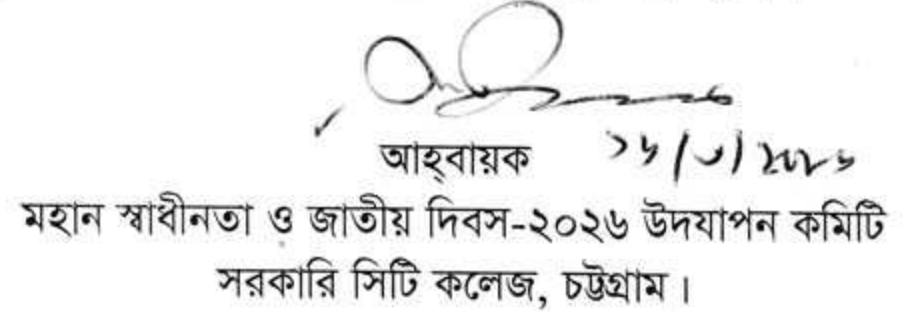 আহ্বায়ক ১৬/৩/২০২৬
মহান স্বাধীনতা ও জাতীয় দিবস-২০২৬ উদযাপন কমিটি
সরকারি সিটি কলেজ, চট্টগ্রাম।